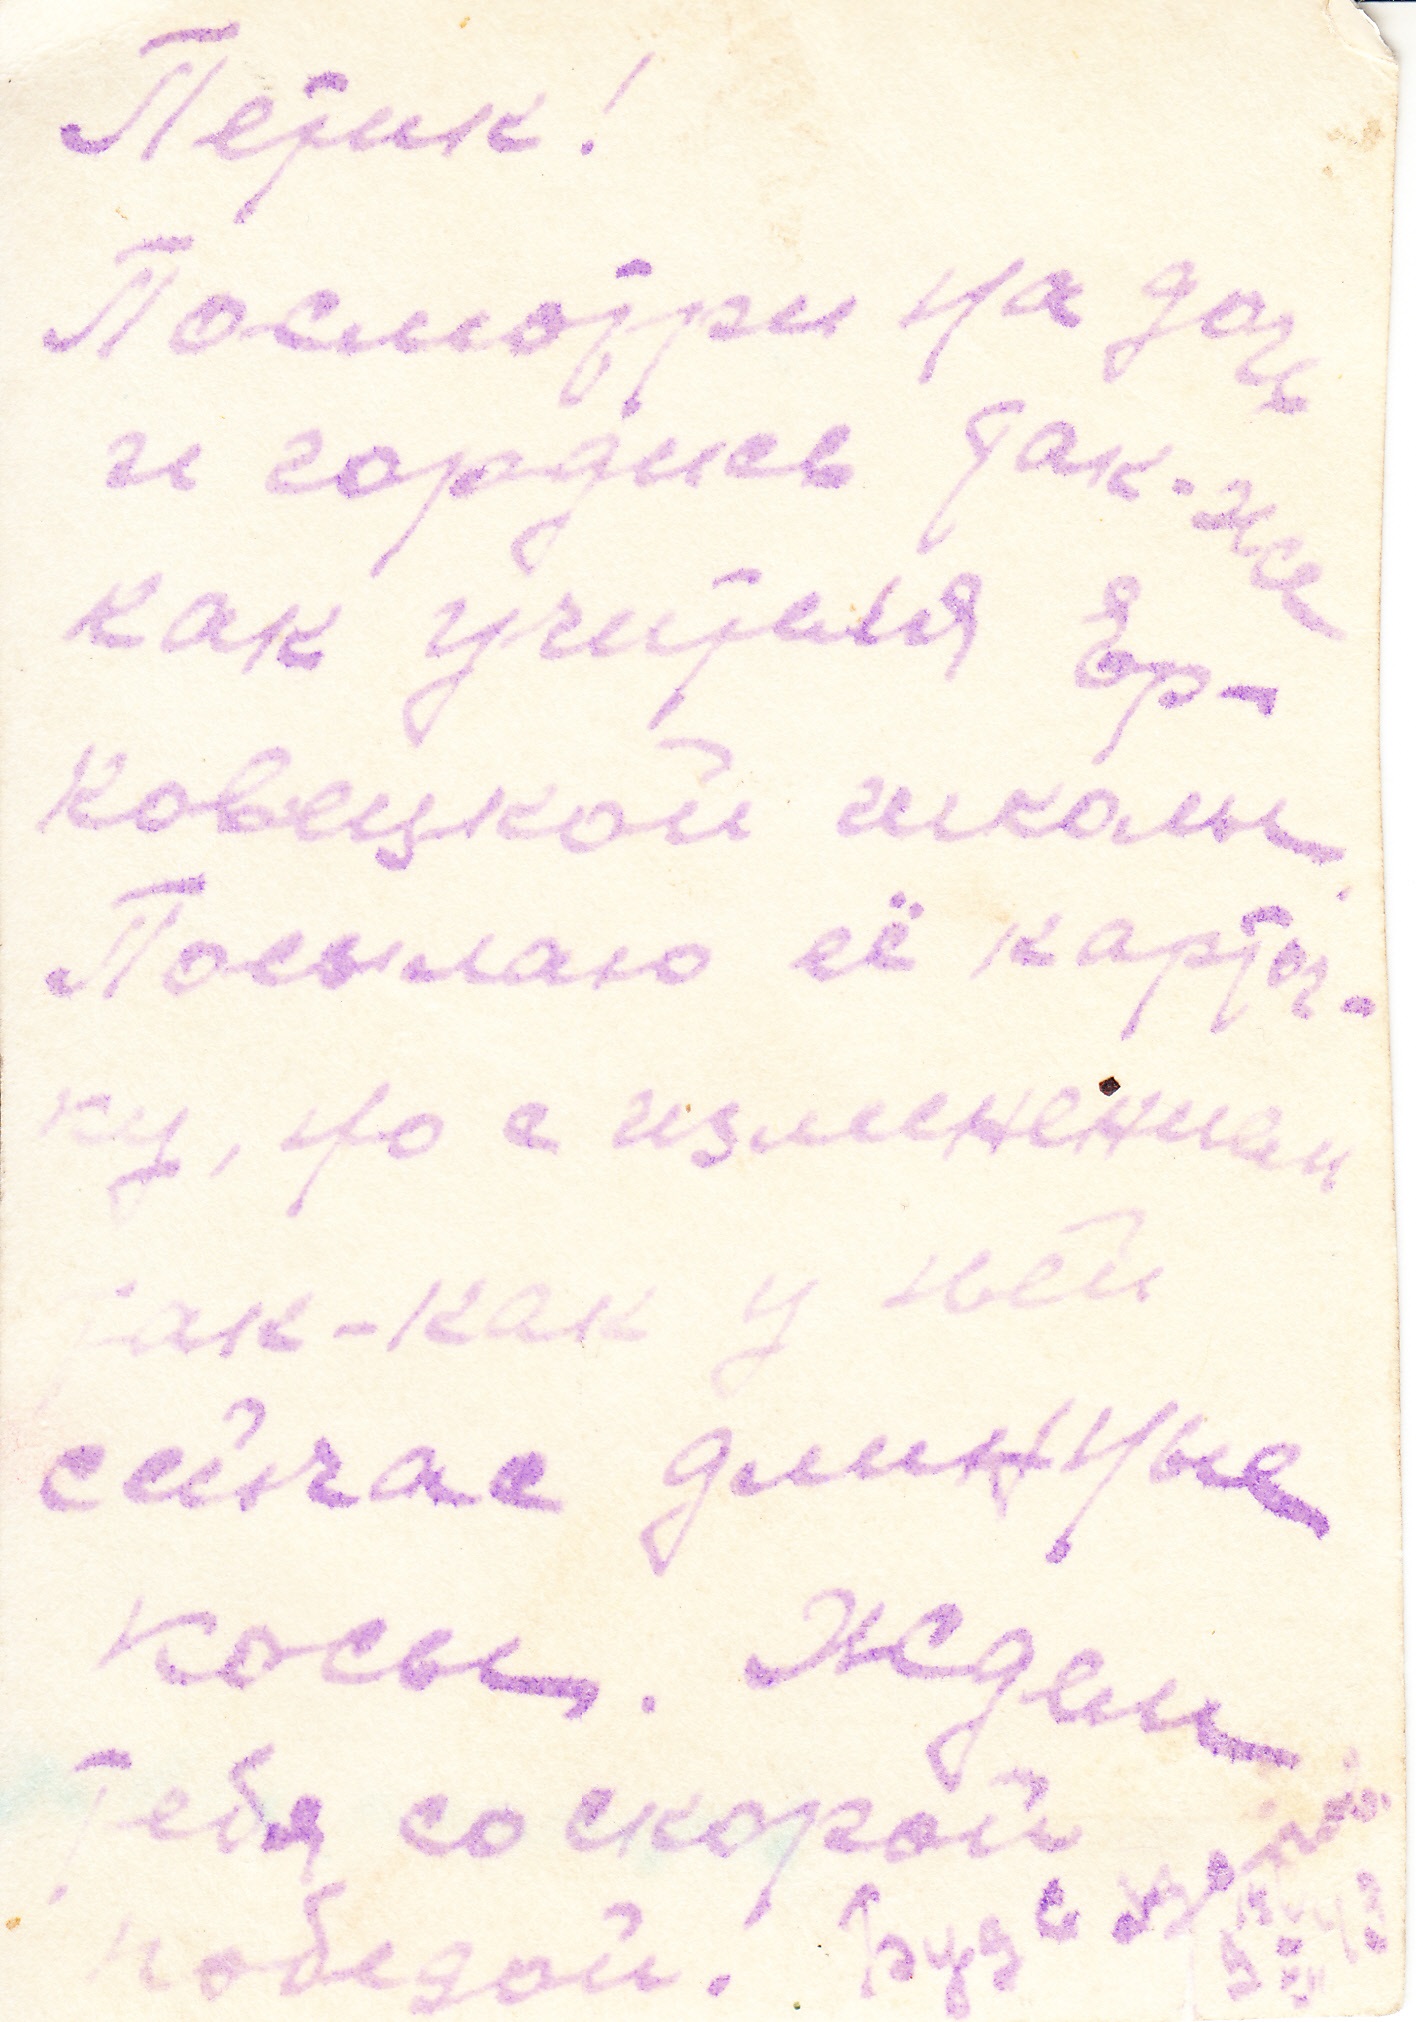 Петик!
Посмотри на дочь
и гордись так-же
как учителя Ер-
ковецкой школы.
Посылаю её карточ-
ку, но с изменением
так-как у ней
сейчас длинные
косы. Ждем
Тебя со скорой
победой. Будь